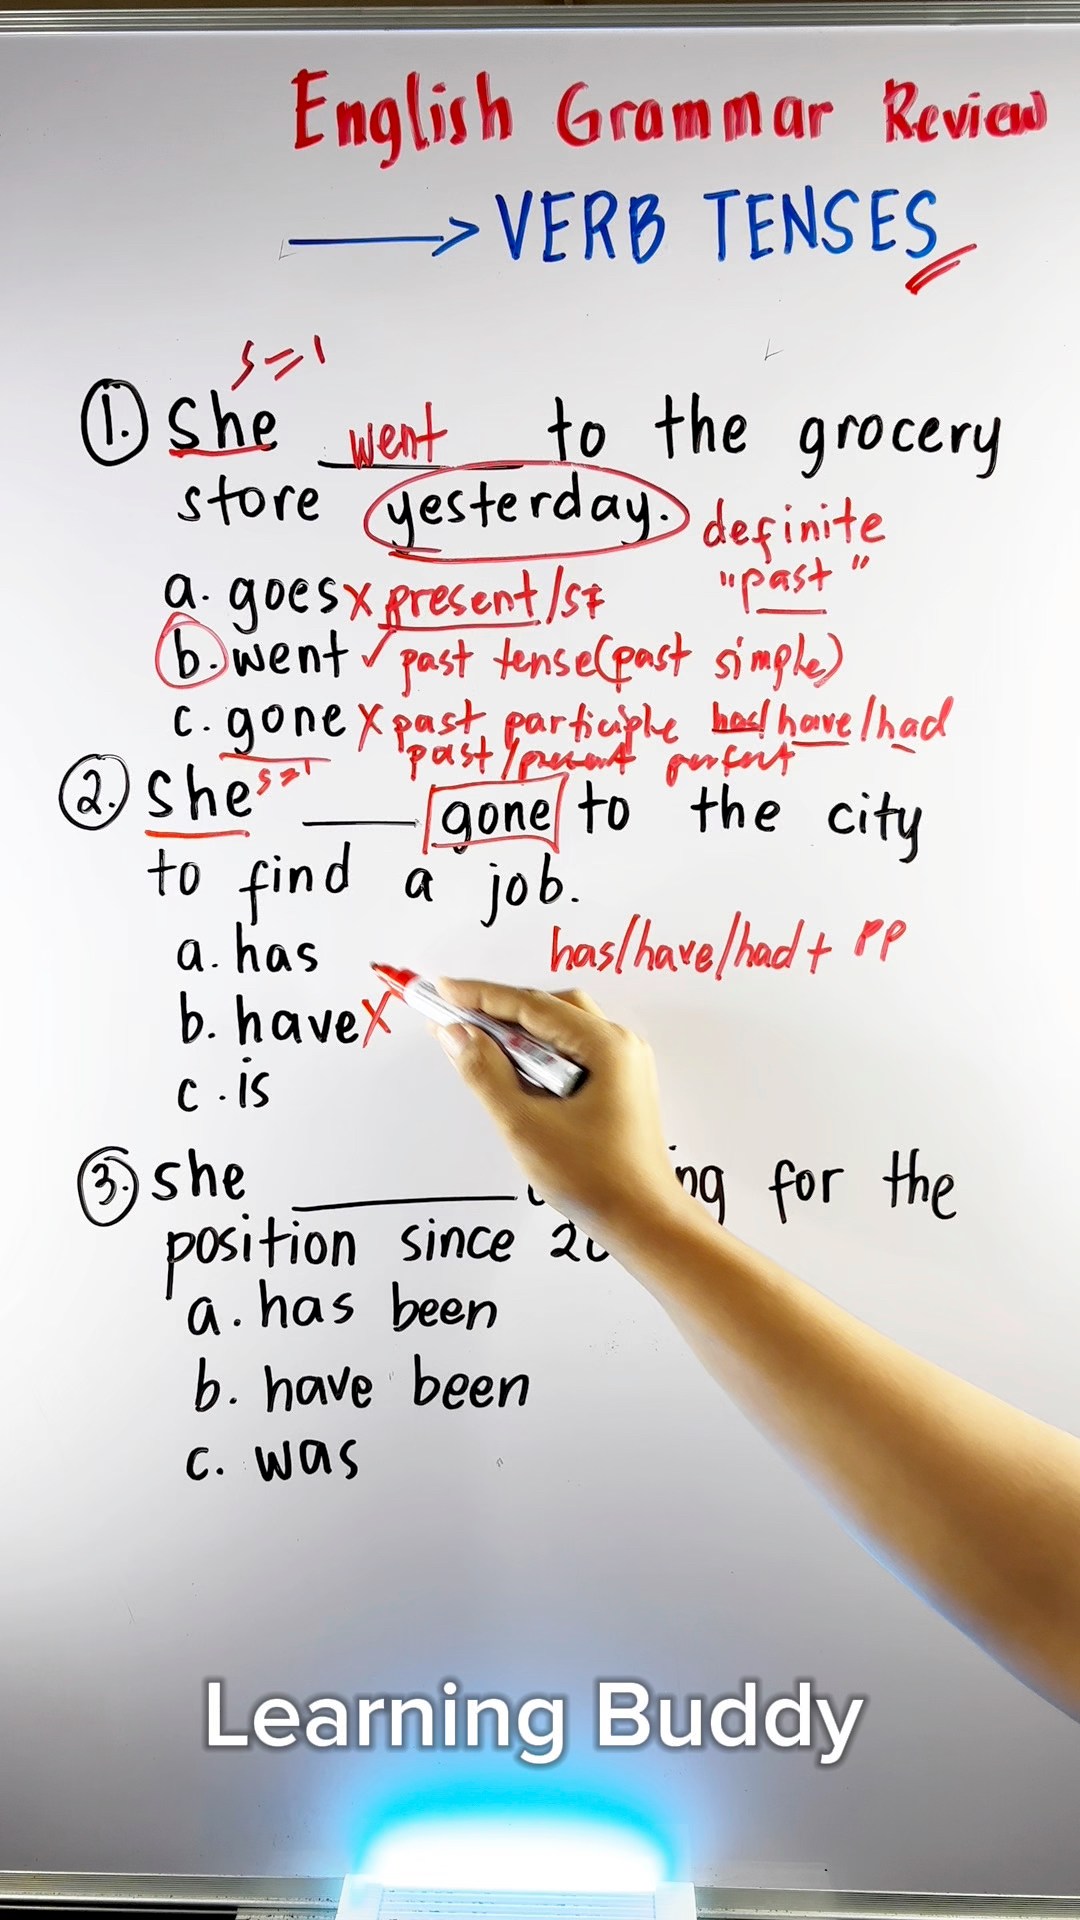 English Grammar Review
VERB TENSES
s=1
1. She went to the grocery
store yesterday. definite
"past"
a. goes x present/s
b. went ✓ past tense (past simple)
c. gone x past participle has/have/had
past/present perfect
2. She s=1 ____ gone to the city
to find a job.
a. has has/have/had + PP
b. have x
c. is
3. she ____ for the
position since
a. has been
b. have been
c. was
Learning Buddy